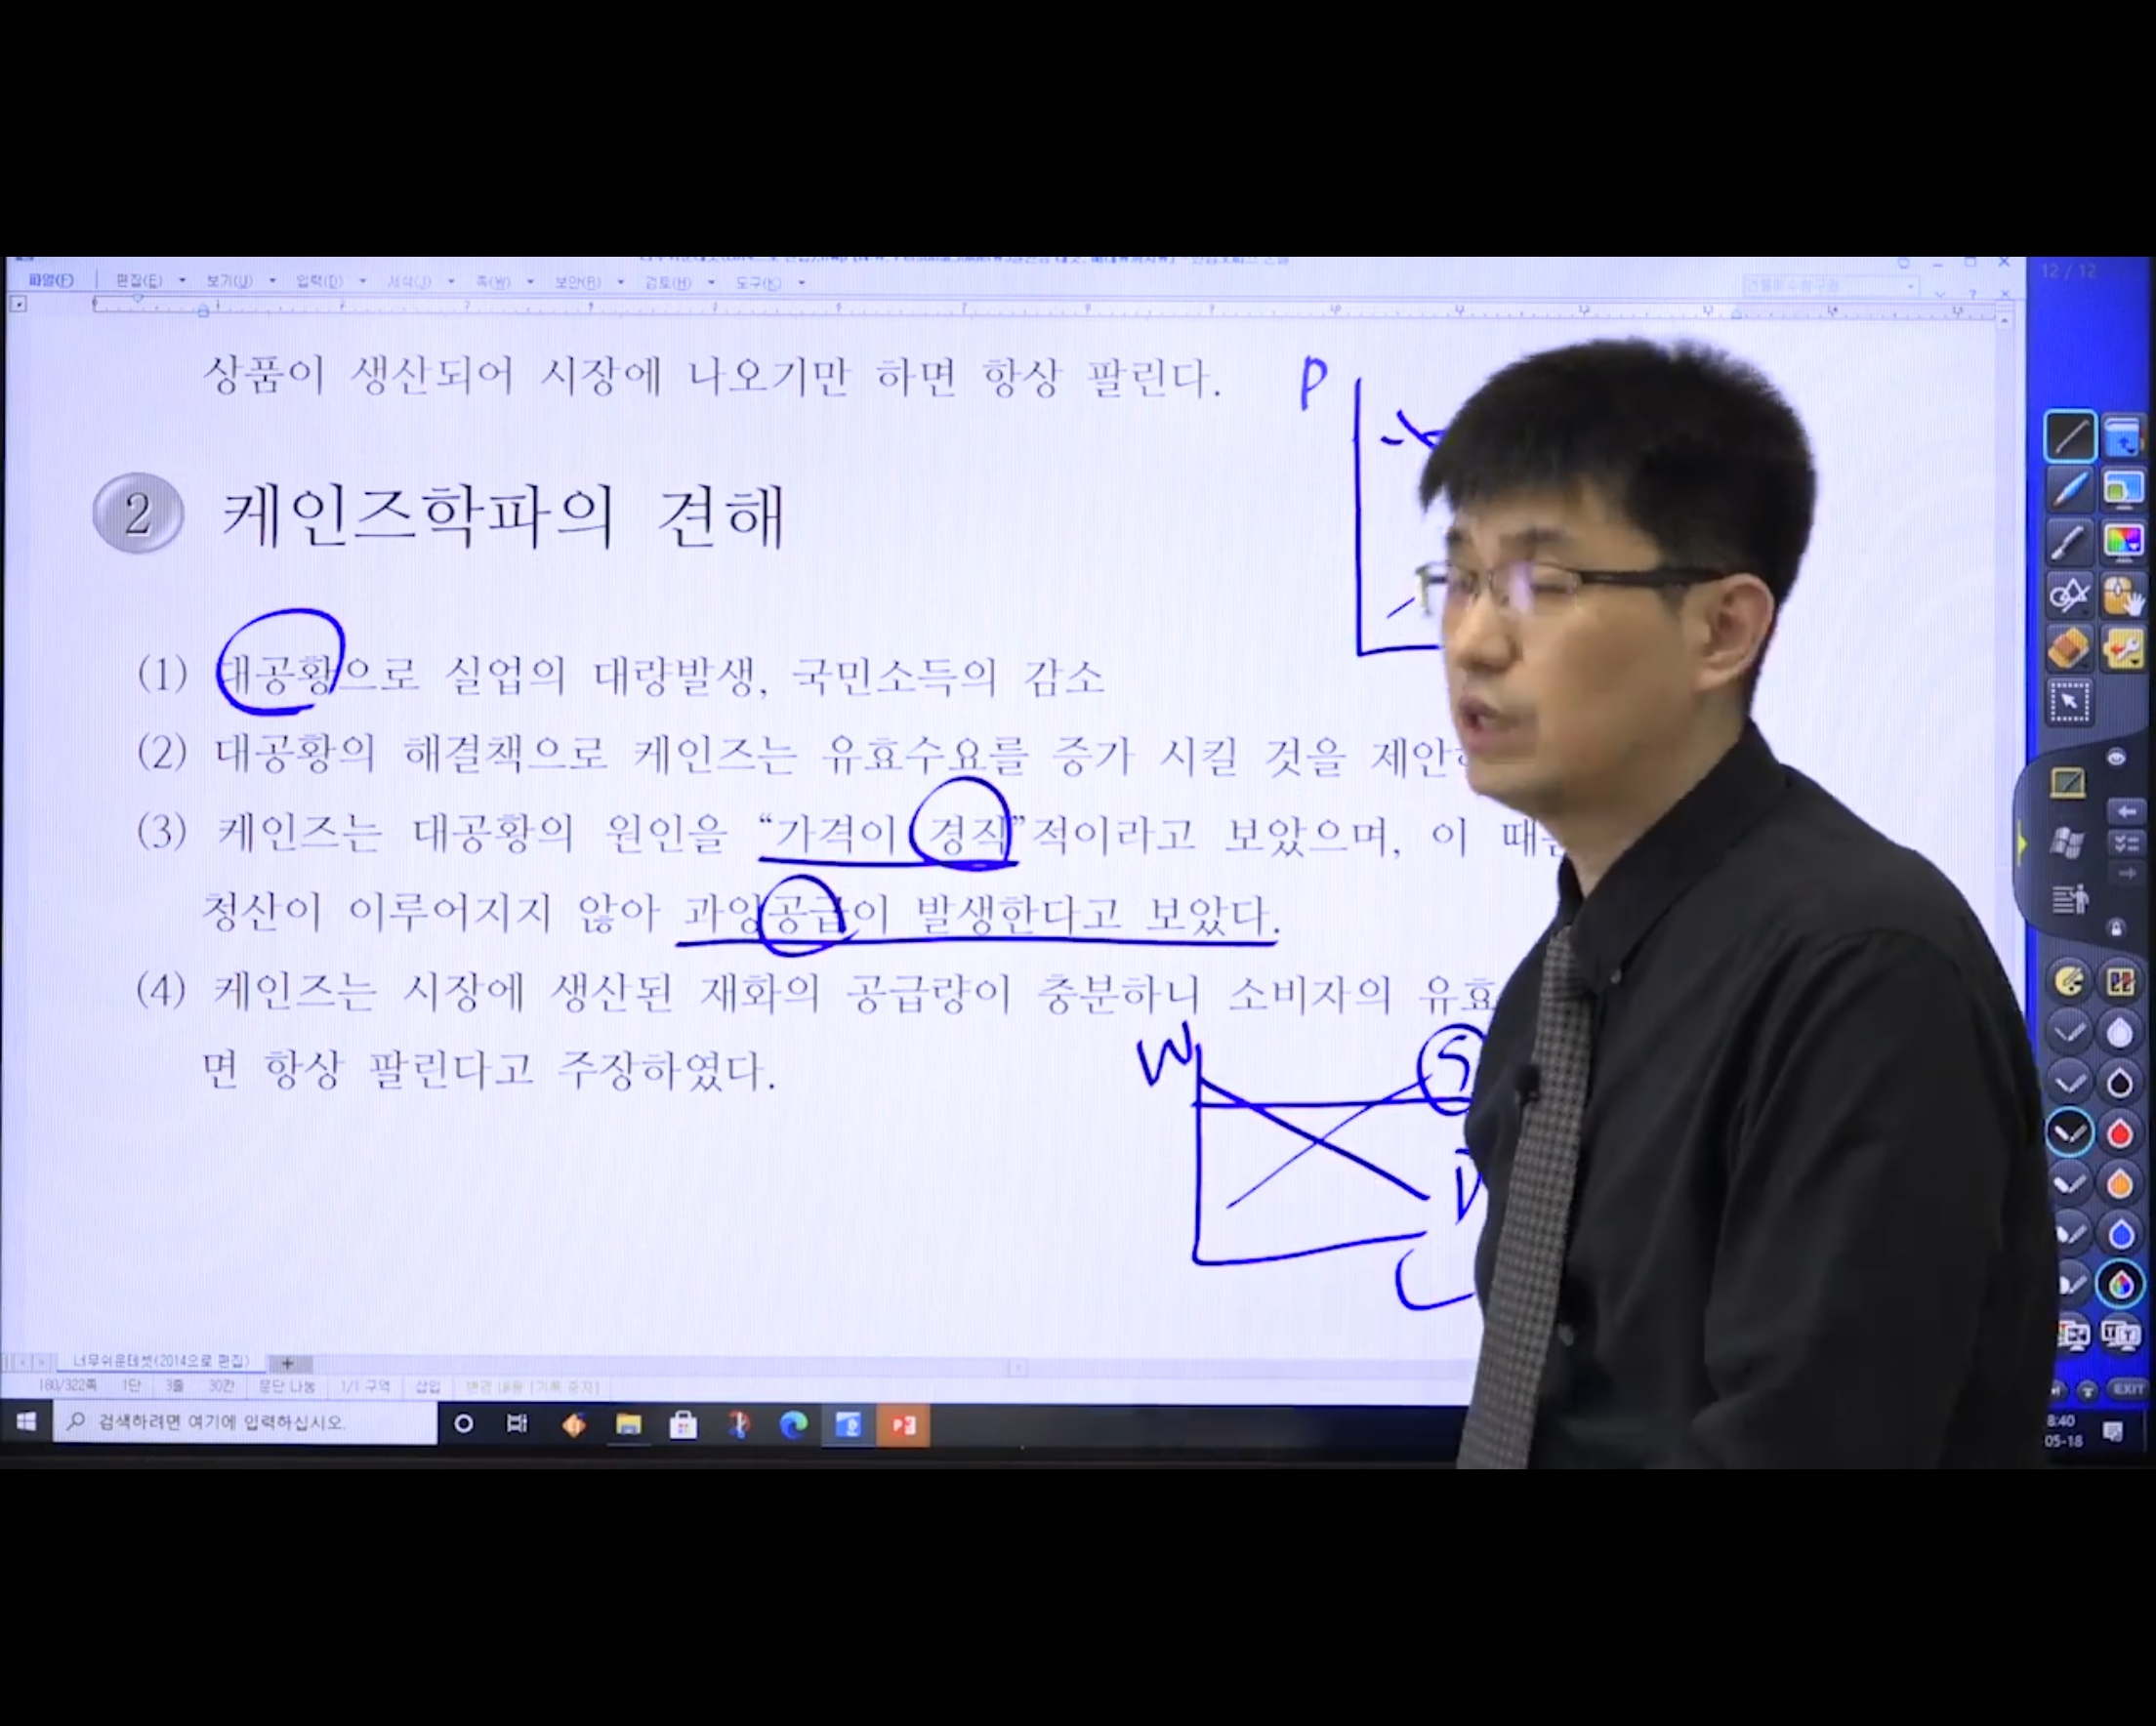 파일(F) 편집(E) 보기(U) 입력(D) 서식(J) 쪽(W) 보안(B) 검토(H) 도구(K)
12 / 12
상품이 생산되어 시장에 나오기만 하면 항상 팔린다.
P
2 케인즈학파의 견해
(1) 대공황으로 실업의 대량발생, 국민소득의 감소
(2) 대공황의 해결책으로 케인즈는 유효수요를 증가 시킬 것을
(3) 케인즈는 대공황의 원인을 “가격이 경직”적이라고 보았으며, 이
청산이 이루어지지 않아 과잉공급이 발생한다고 보았다.
(4) 케인즈는 시장에 생산된 재화의 공급량이 충분하니 소비자의
면 항상 팔린다고 주장하였다.
W
S
D
L
너무쉬운테셋(2014으로 편집)
180/322쪽 1단 3줄 30칸 문단 나눔 1/1 구역 삽입 변경 내용 [기록 중지]
검색하려면 여기에 입력하십시오.
EXIT
8:40
05-18